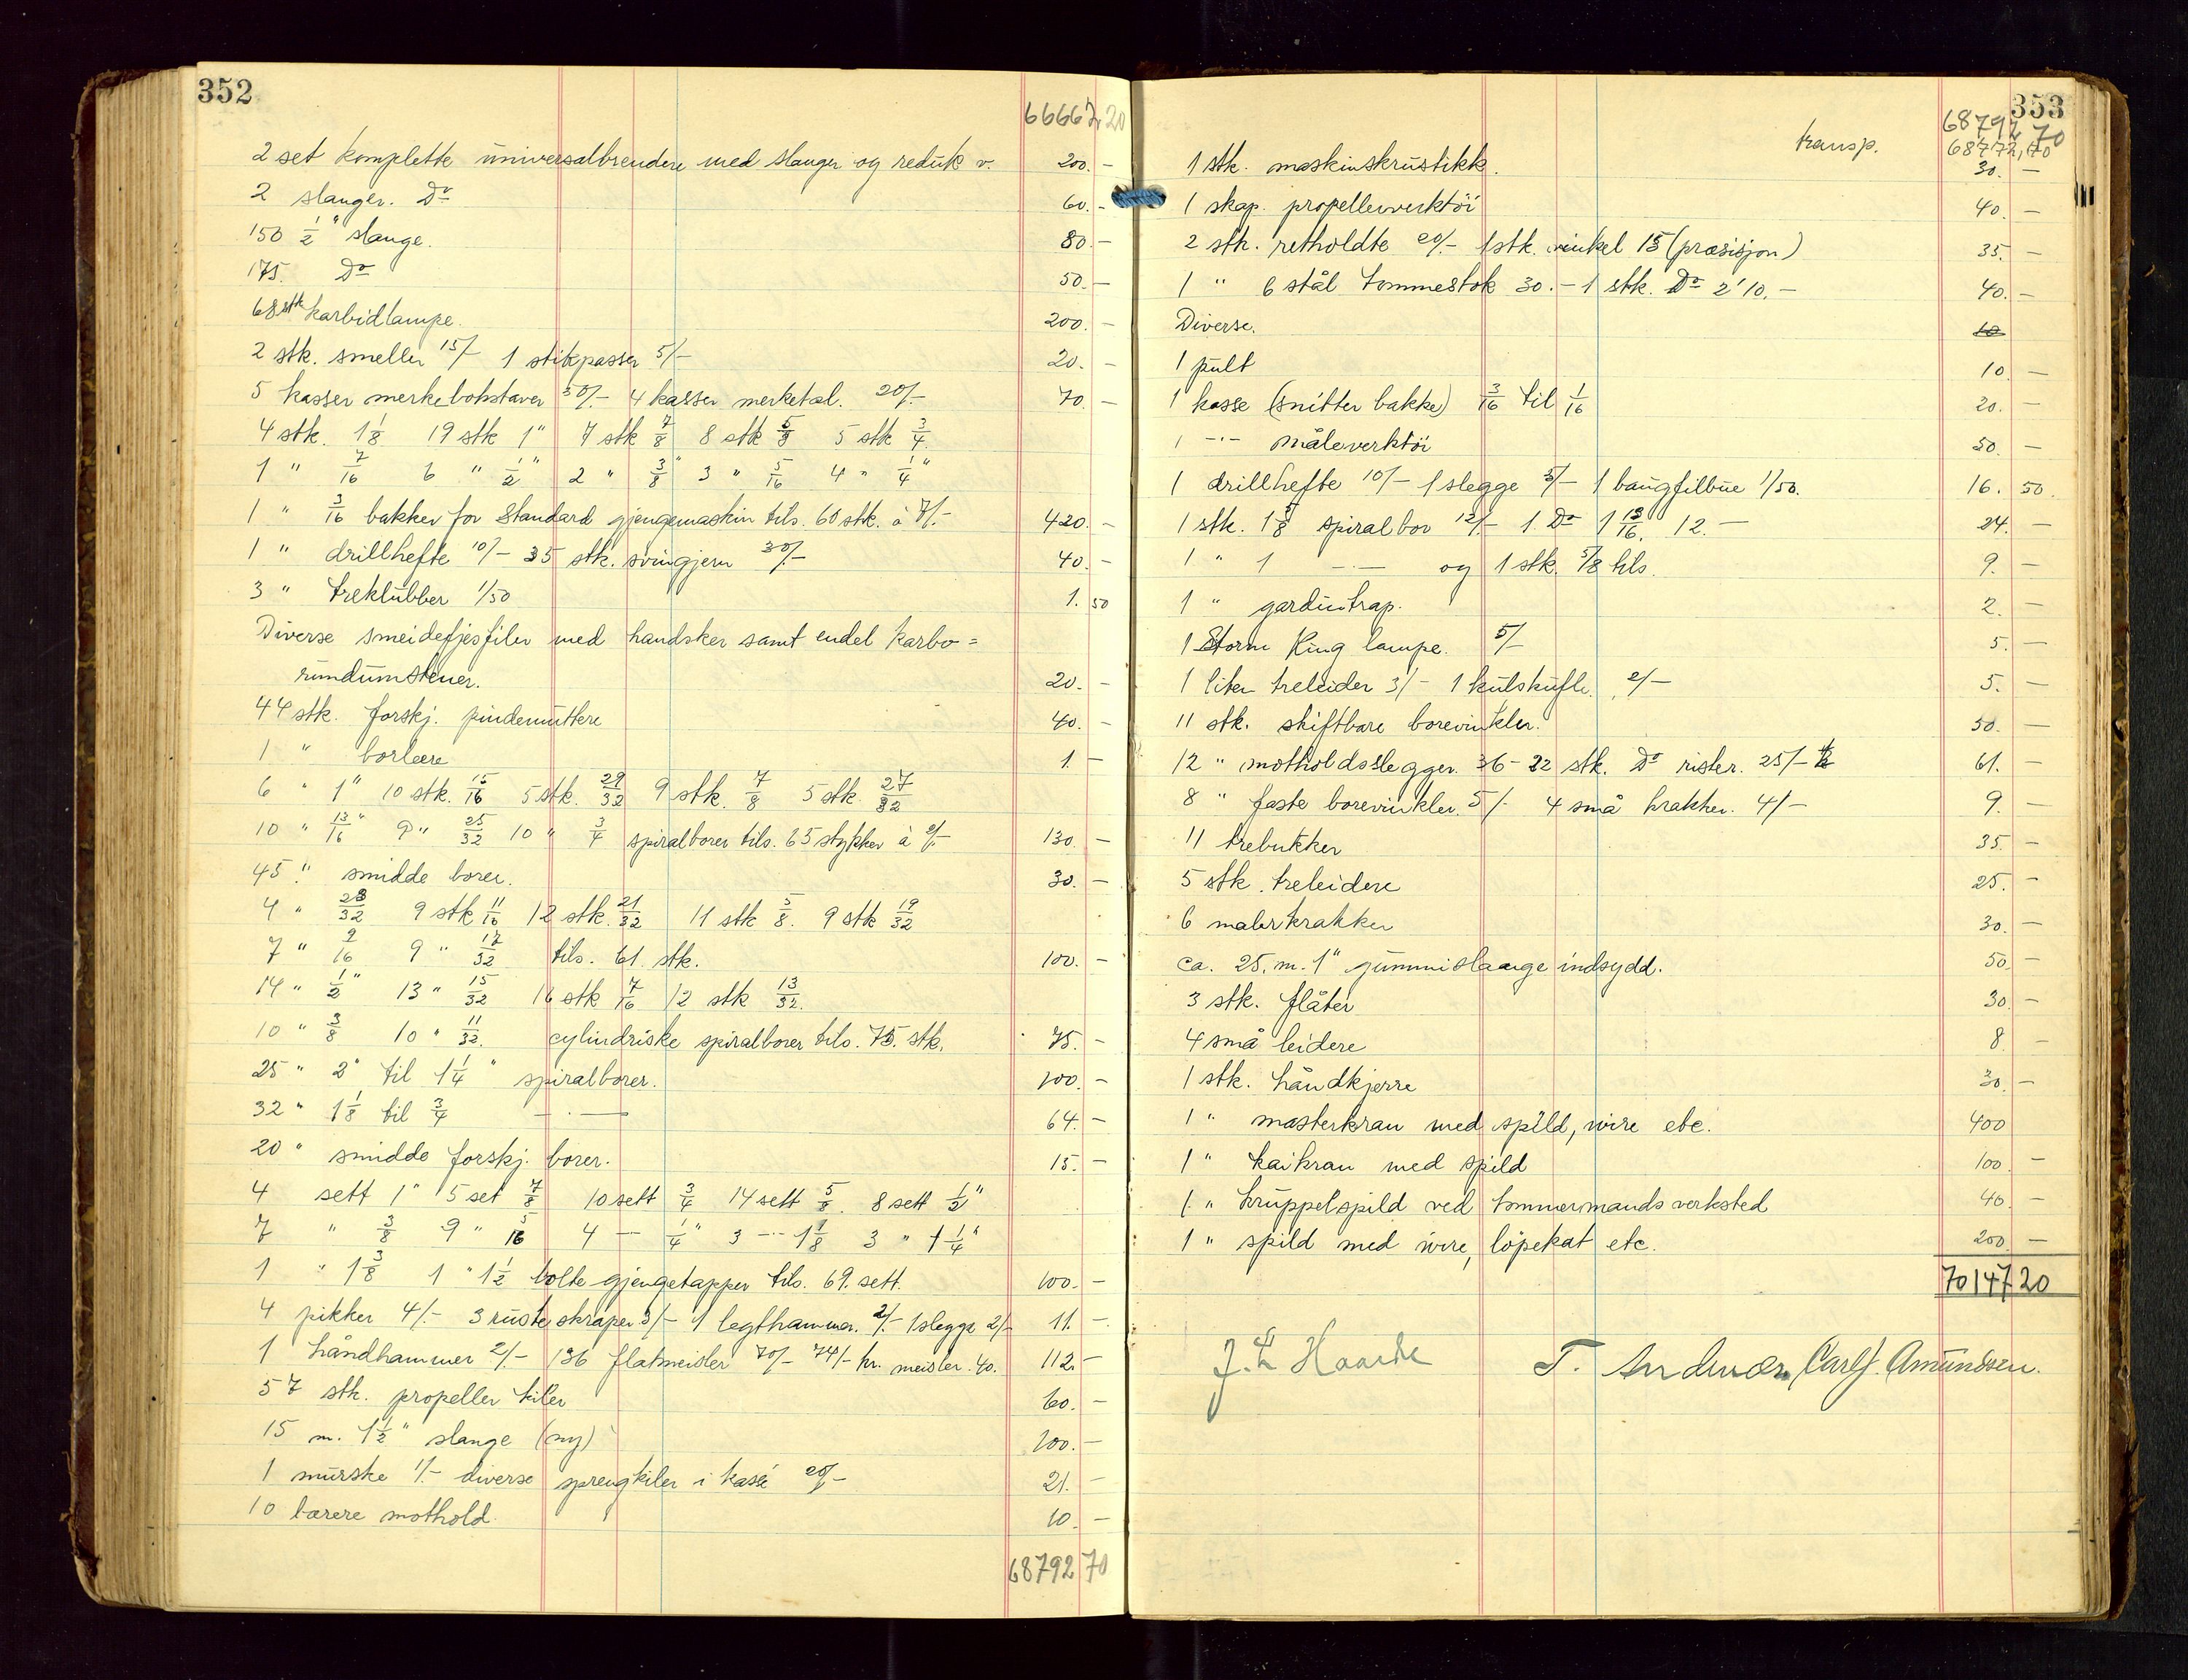 352
66667,20
2 set komplette universalbrendere med slanger og reduk v. 200.-
2 slanger. Do 60.-
150 1/2" slange. 80.-
175. Do 50.-
68 stk karbidlampe. 200.-
2 stk. smeller 15/- 1 stikpasser 5/- 20.-
5 kasser merkebokstaver 50/- 4 kasser merketal. 20/- 70.-
4 stk. 1 1/8 19 stk 1" 7 stk 7/8 8 stk 5/8 5 stk 3/4.
1 " 7/16 6 " 1/2" 2 " 3/8" 3 " 5/16 4 " 1/4"
1 " 3/16 bakker for Standard gjengemaskin tils. 60 stk. à 7/- 420.-
1 " drillhefte 10/- 35 stk. svingjern 30/- 40.-
3 " treklubber 1/50 1.50
Diverse smeidefjesfiler med handsker samt endel karbo=
rundumstener. 20.-
44 stk. forskj. pindemuttere 40.-
1 " borlære 1.-
6 " 1" 10 stk. 15/16 5 stk. 29/32 9 stk. 7/8 5 stk. 27/32
10 " 13/16" 9 " 25/32 10 " 3/4 spiralborer tils. 65 stykker à 2/- 130.-
45 " smidde borer. 30.-
4 " 23/32 9 stk 11/16 12 stk. 21/32 11 stk 5/8. 9 stk 19/32
7 " 9/16 9 " 17/32 tils. 61 stk. 100.-
14 " 1/2" 13 " 15/32 16 stk 7/16 12 stk 13/32.
10 " 3/8 10 " 11/32. cylindriske spiralborer tils. 75. stk. 75.-
25 " 2" til 1 1/4 " spiralborer. 100.-
32 " 1 1/8 til 3/4 —"— 64.-
20 " smidde forskj. borer. 15.-
4 sett 1" 5 set 7/8 10 sett 3/4 14 sett 5/8. 8 sett 1/2"
7 " 3/8 9 " 5/16 4 — 1/4" 3 -"- 1 1/8 3 " 1 1/4"
1 " 1 3/8 1 " 1 1/2 bolte gjengetapper tils. 69. sett. 100.-
4 pikker 4/- 3 ruste skraper 3/- 1 legthammer. 2/- 1 slegge 2/- 11.-
1 håndhammer 2/- 136 flatmeisler 70/- 74/- kr. meisler. 40. 112.-
57 stk. propeller kiler 60.-
15 m. 1 1/2" slange (ny) 100.-
1 murske 1/- diverse sprengkiler i kasse 20/- 21.-
10 lærere mothold. 10.-
68792 70
353
transp. 68792,70
68772,70
1 stk. maskinskrustikk. 30.-
1 skap. propellerverktöi 40.-
2 stk. retholdte 20/- 1 stk. vinkel 15 (præsisjon) 35.-
1 " 6 stål tommestok 30.- 1 stk. Do 2' 10.- 40.-
Diverse. 10
1 pult 10.-
1 kasse (snitter bakke) 3/16 til 1/16 20.-
1 -"- måleverktöi 50.-
1 drillhefte 10/- 1 slegge 5/- 1 baugfilbue 1/50. 16.50.
1 stk. 1 5/8 spiralbor 12/- 1 Do 1 13/16. 12.- 24.-
1 " 1 -"- og 1 stk. 5/8 tils. 9.-
1 " gardintrap. 2.-
1 Storm King lampe. 5/- 5.-
1 liten treleider 3/- 1 kulskufle. 2/- 5.-
11 stk. skiftbare borevinkler. 50.-
12 " motholdsslegger. 36 - 22 stk. Do rister. 25/- 61.-
8 " faste borevinkler. 5/- 4 små krakker. 4/- 9.-
11 trebukker 35.-
5 stk. treleidere 25.-
6 malerkrakker 30.-
ca. 25. m. 1" gummislange indsydd. 50.-
3 stk. flåter 30.-
4 små leidere 8.-
1 stk. håndkjerre 30.-
1 " masterkran med spild, wire etc. 400
1 " kaikran med spild 100.-
1 " kruppelspild ved tommermands verksted 40.-
1 " spild med wire, löpekat etc. 200.-
70147 20
T. Andersen Carl J. Amundsen.